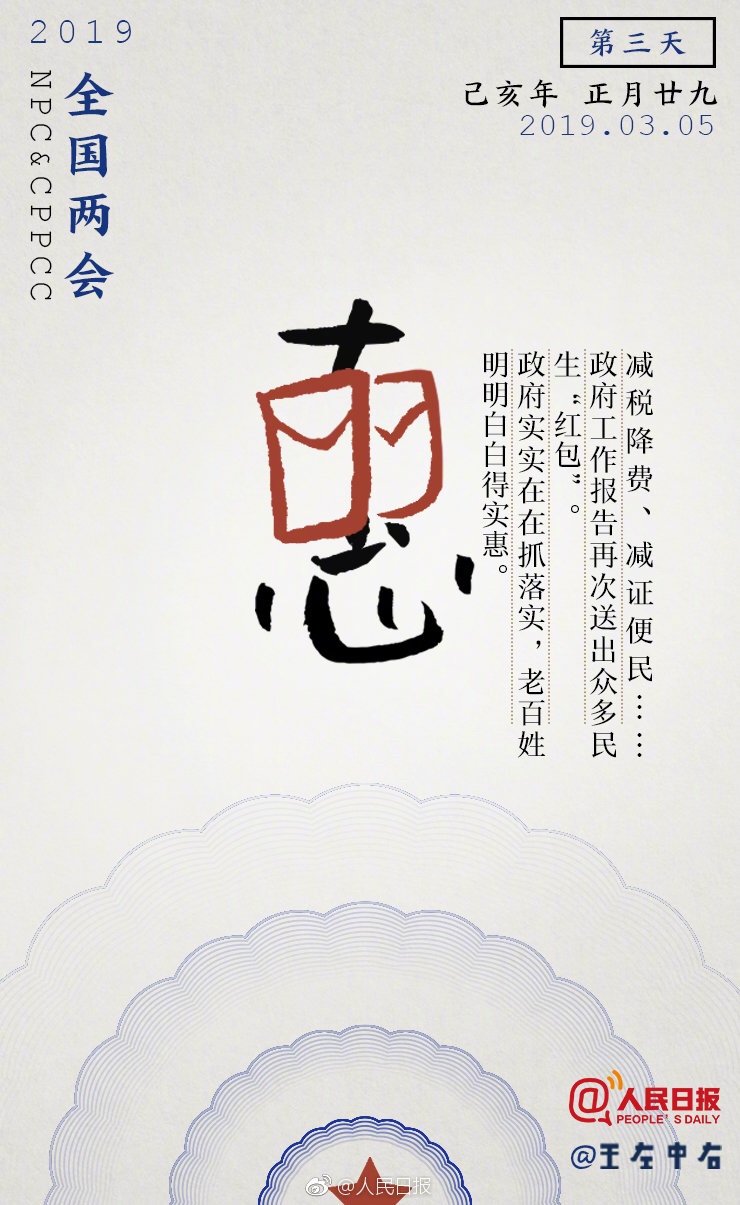 2019
全国两会
NPC&CPPCC
第三天
己亥年 正月廿九
2019.03.05
惠
减税降费、减证便民……
政府工作报告再次送出众多民
生“红包”。
政府实实在在抓落实，老百姓
明明白白得实惠。
@人民日报
PEOPLE'S DAILY
@王左中右
@人民日报